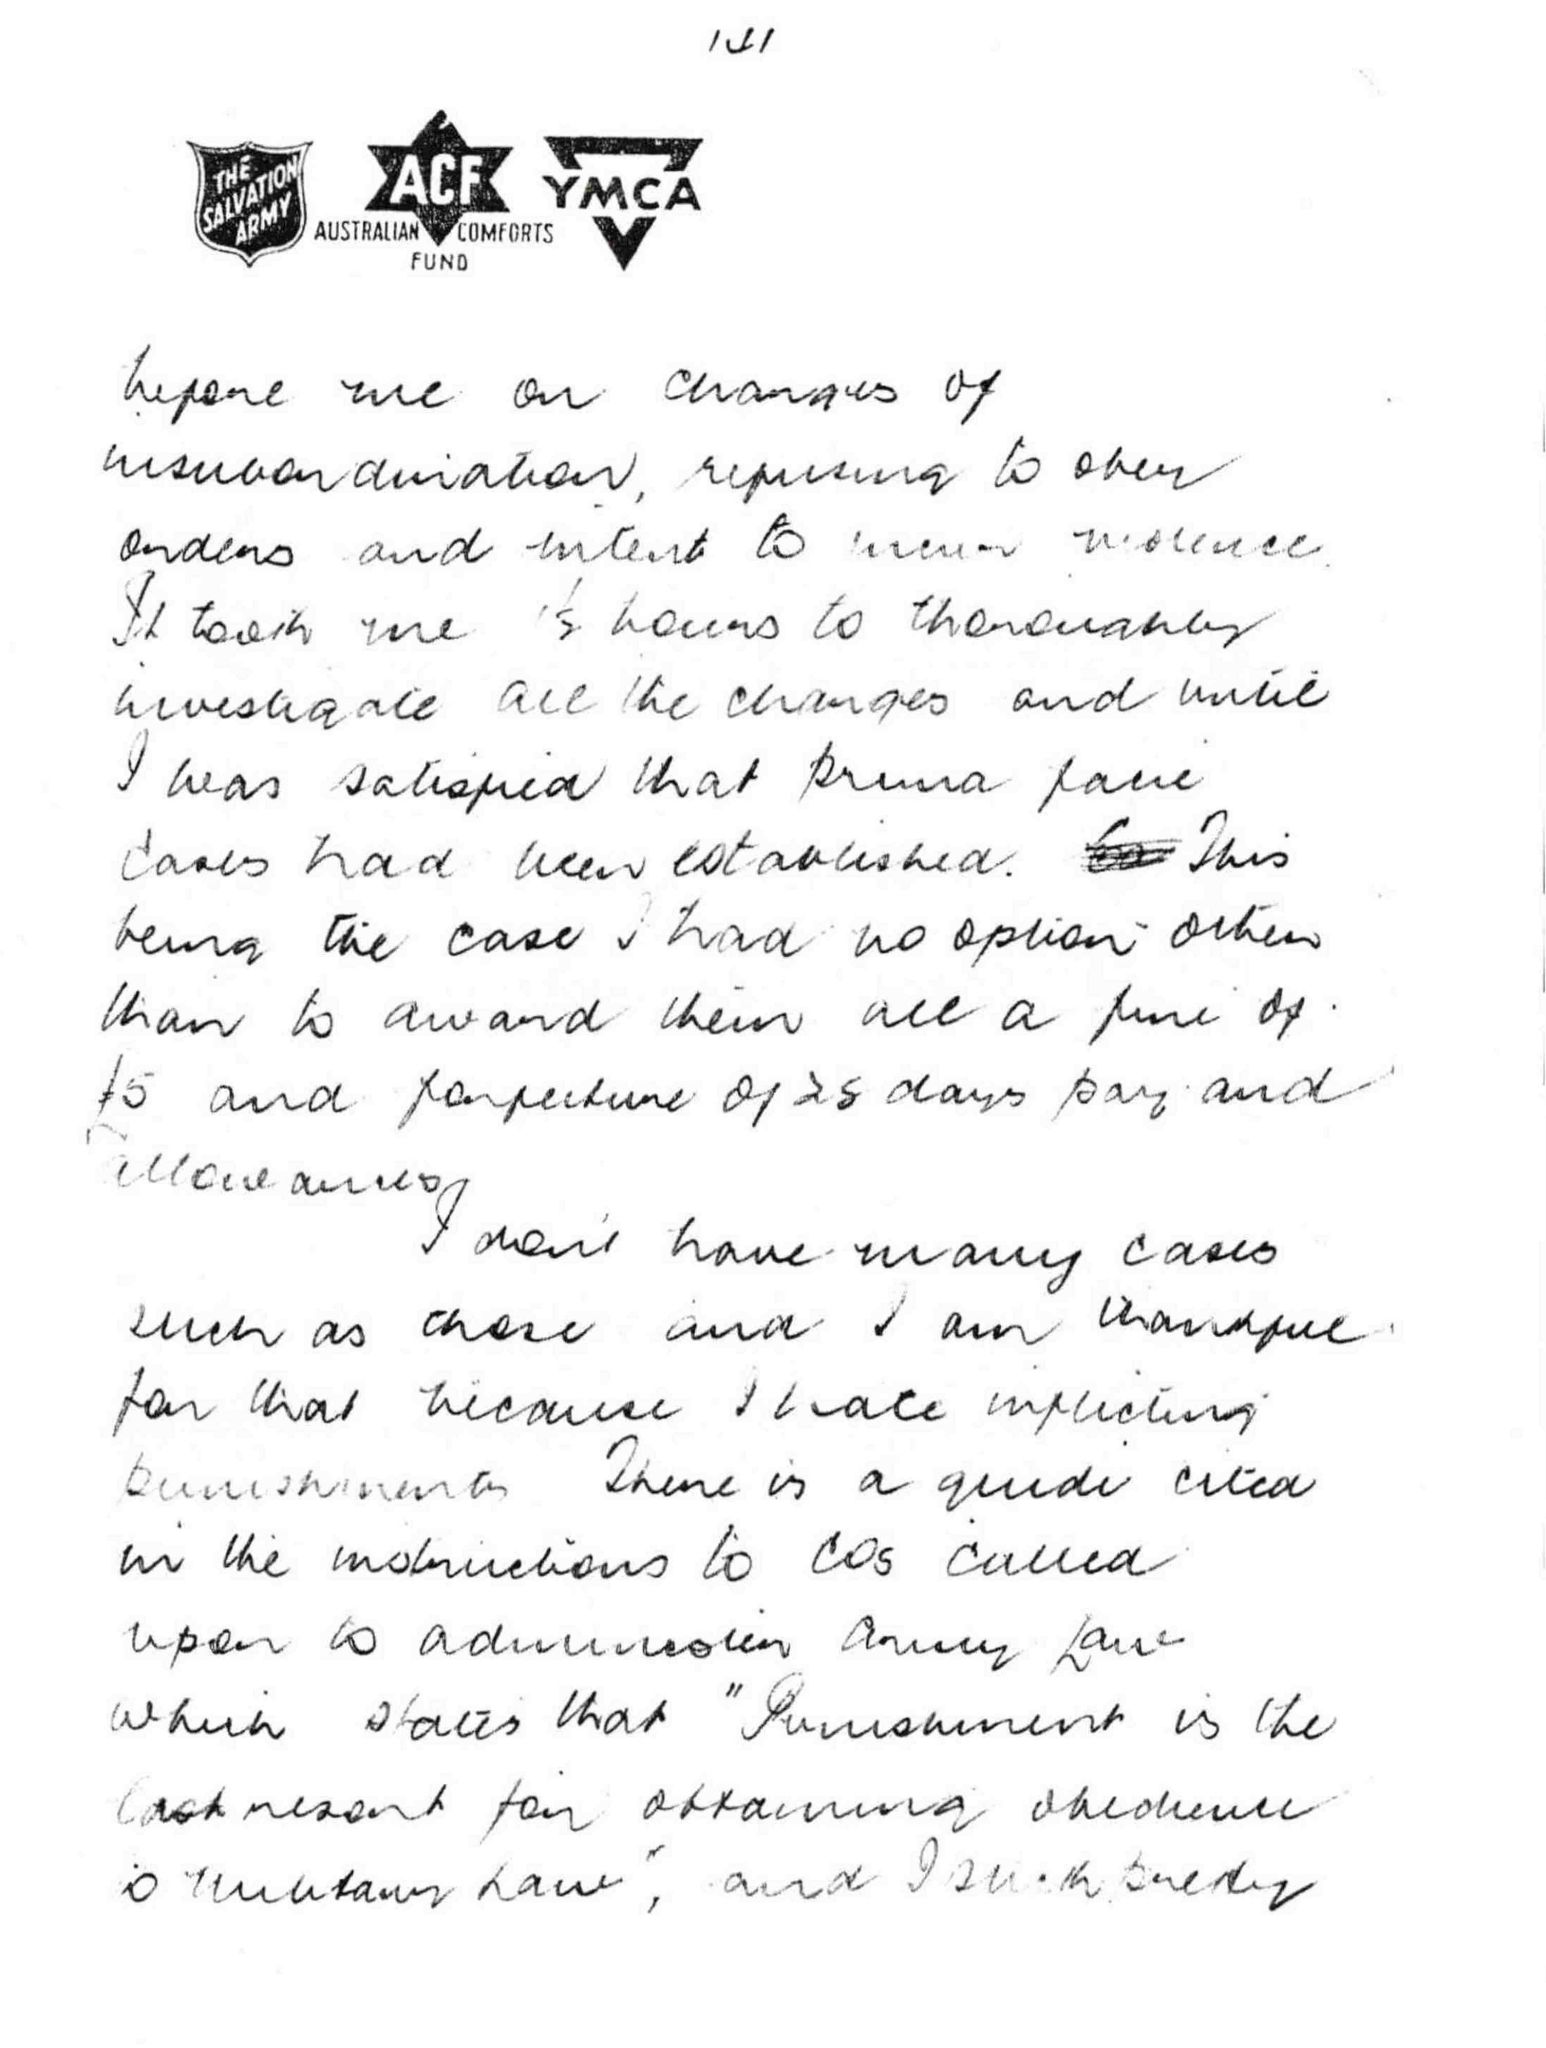 THE
SALVATION
ARMY
ACF
AUSTRALIAN COMFORTS
FUND
YMCA
before me on charges of
insubordination, refusing to obey
orders and intent to incur violence.
It took me hours to thoroughly
investigate all the charges and until
I was satisfied that prima facie
cases had been established. This
being the case I had no option other
than to award them all a fine of
£5 and forfeiture of 28 days pay and
allowances.
I don't have many cases
such as those and I am thankful
for that because I hate inflicting
punishments There is a guide cited
in the instructions to COs called
upon to administer Army Law
which states that "Punishment is the
last resort for obtaining obedience
to Military Law", and I stick pretty